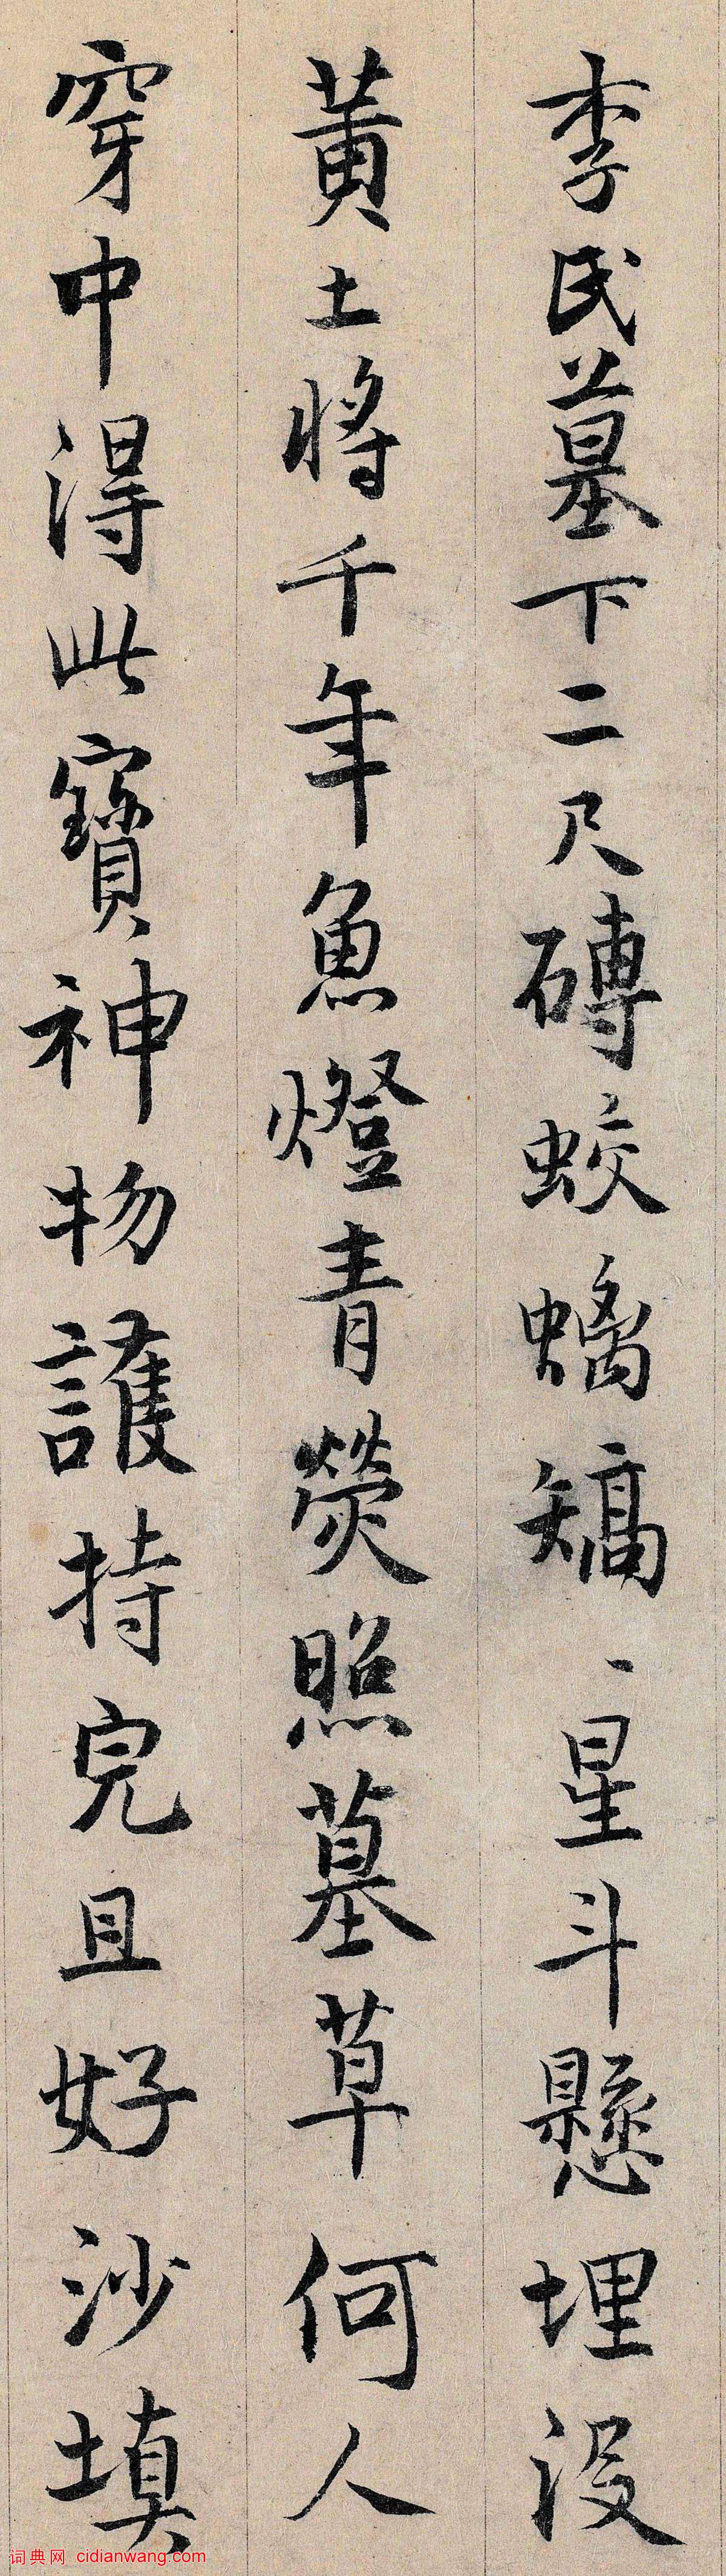 李氏墓下二尺磚蛟螭矯〻星斗懸埋没
黄土將千年魚燈青熒照墓草何人
穿中得此寶神物護持完且好沙填
词典网 cidianwang.com